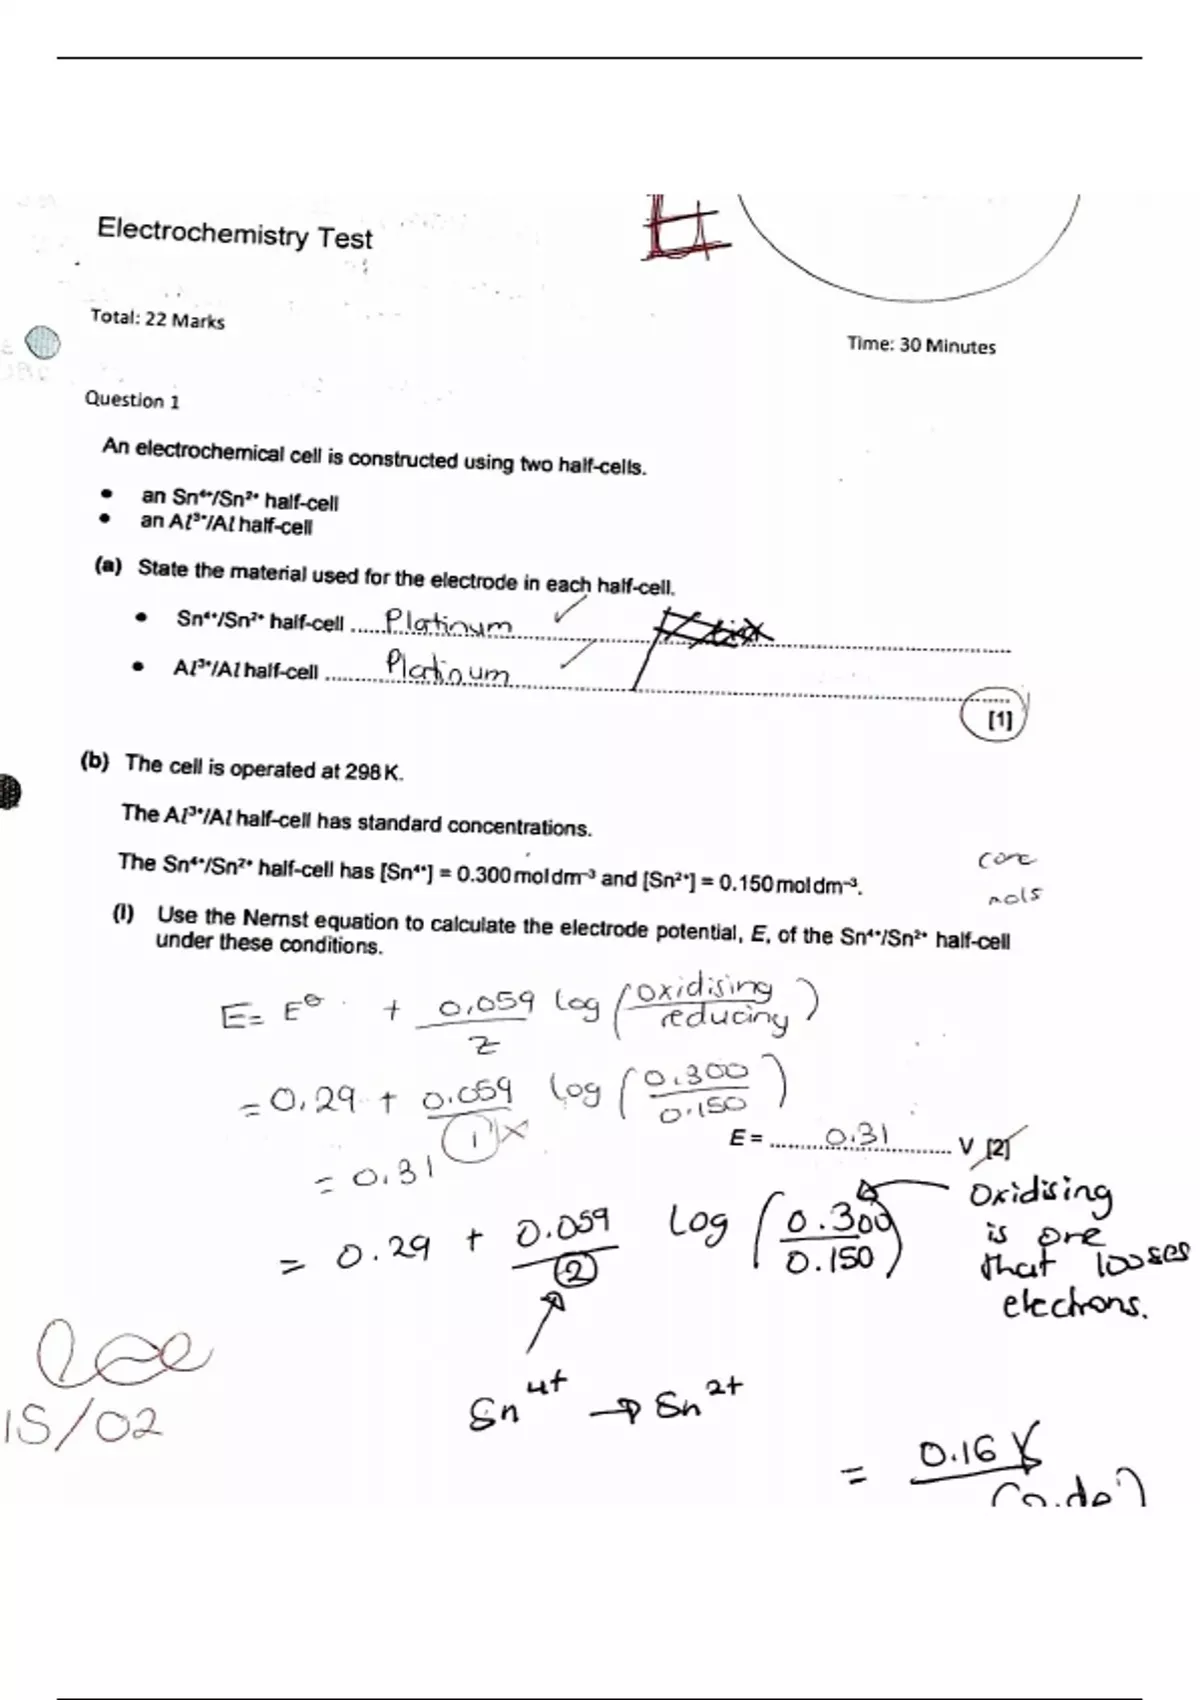 Electrochemistry Test
Total: 22 Marks
Time: 30 Minutes
Question 1
An electrochemical cell is constructed using two half-cells.
• an Sn⁴⁺/Sn²⁺ half-cell
• an Al³⁺/Al half-cell
(a) State the material used for the electrode in each half-cell.
• Sn⁴⁺/Sn²⁺ half-cell Platinum
• Al³⁺/Al half-cell Platinum
[1]
(b) The cell is operated at 298 K.
The Al³⁺/Al half-cell has standard concentrations.
The Sn⁴⁺/Sn²⁺ half-cell has [Sn⁴⁺] = 0.300 mol dm⁻³ and [Sn²⁺] = 0.150 mol dm⁻³.
conc
mols
(i) Use the Nernst equation to calculate the electrode potential, E, of the Sn⁴⁺/Sn²⁺ half-cell
under these conditions.
E = E⊖ + 0.059/z log (oxidising/reducing)
= 0.29 + 0.059/1 log (0.300/0.150)
E = 0.31 V [2]
= 0.31
= 0.29 + 0.059/2 log (0.300/0.150)
Oxidising
is one
that looses
electrons.
Sn⁴⁺ → Sn²⁺
15/02
= 0.16 V